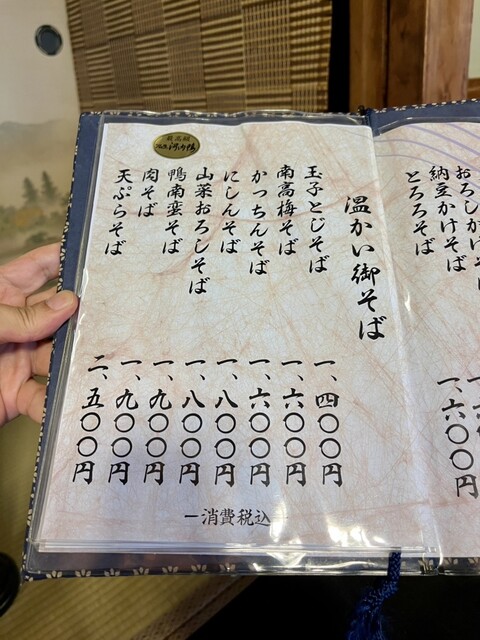 おろしかけそ
納豆かけそば
とろろそば
一、六〇〇円
温かい御そば
玉子とじそば 一、四〇〇円
南高梅そば 一、六〇〇円
かっちんそば 一、六〇〇円
にしんそば 一、八〇〇円
山菜おろしそば 一、八〇〇円
鴨南蛮そば 一、九〇〇円
肉そば 一、九〇〇円
天ぷらそば 二、五〇〇円
ー消費税込